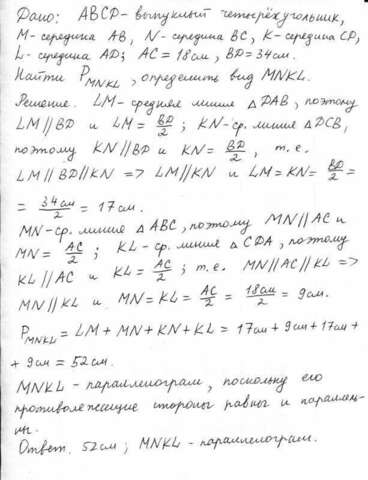 Дано: ABCD - выпуклый четырёхугольник,
M - середина AB, N - середина BC, K - середина CD,
L - середина AD; AC = 18см, BD = 34см.
Найти P_MNKL, определить вид MNKL.
Решение. LM - средняя линия △DAB, поэтому
LM ∥ BD и LM = BD/2; KN - ср. линия △DCB,
поэтому KN ∥ BD и KN = BD/2, т.е.
LM ∥ BD ∥ KN => LM ∥ KN и LM = KN = BD/2 =
= 34см/2 = 17см.
MN - ср. линия △ABC, поэтому MN ∥ AC и
MN = AC/2; KL - ср. линия △CDA, поэтому
KL ∥ AC и KL = AC/2; т.е. MN ∥ AC ∥ KL =>
MN ∥ KL и MN = KL = AC/2 = 18см/2 = 9см.
P_MNKL = LM + MN + KN + KL = 17см + 9см + 17см +
+ 9см = 52см.
MNKL - параллелограм, поскольку его
противолежащие стороны равны и параллель-
ны.
Ответ. 52см; MNKL - параллелограм.